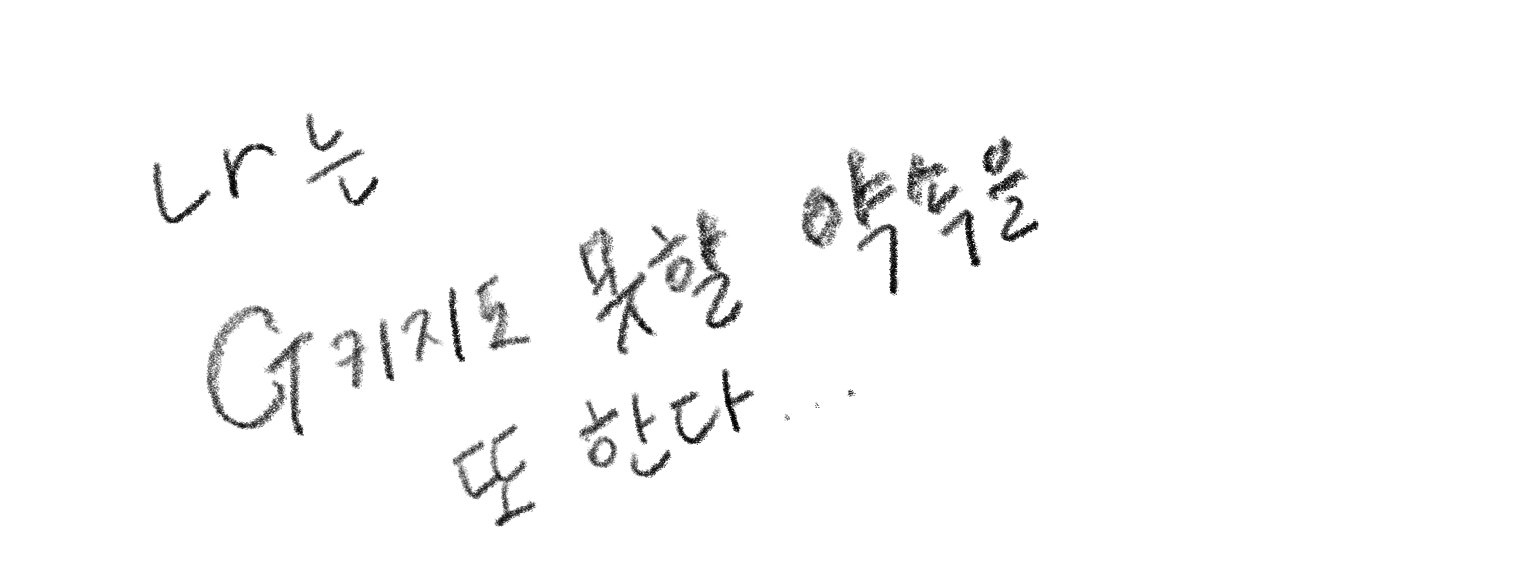 나는
G키지도 못할 약속을
또 한다...